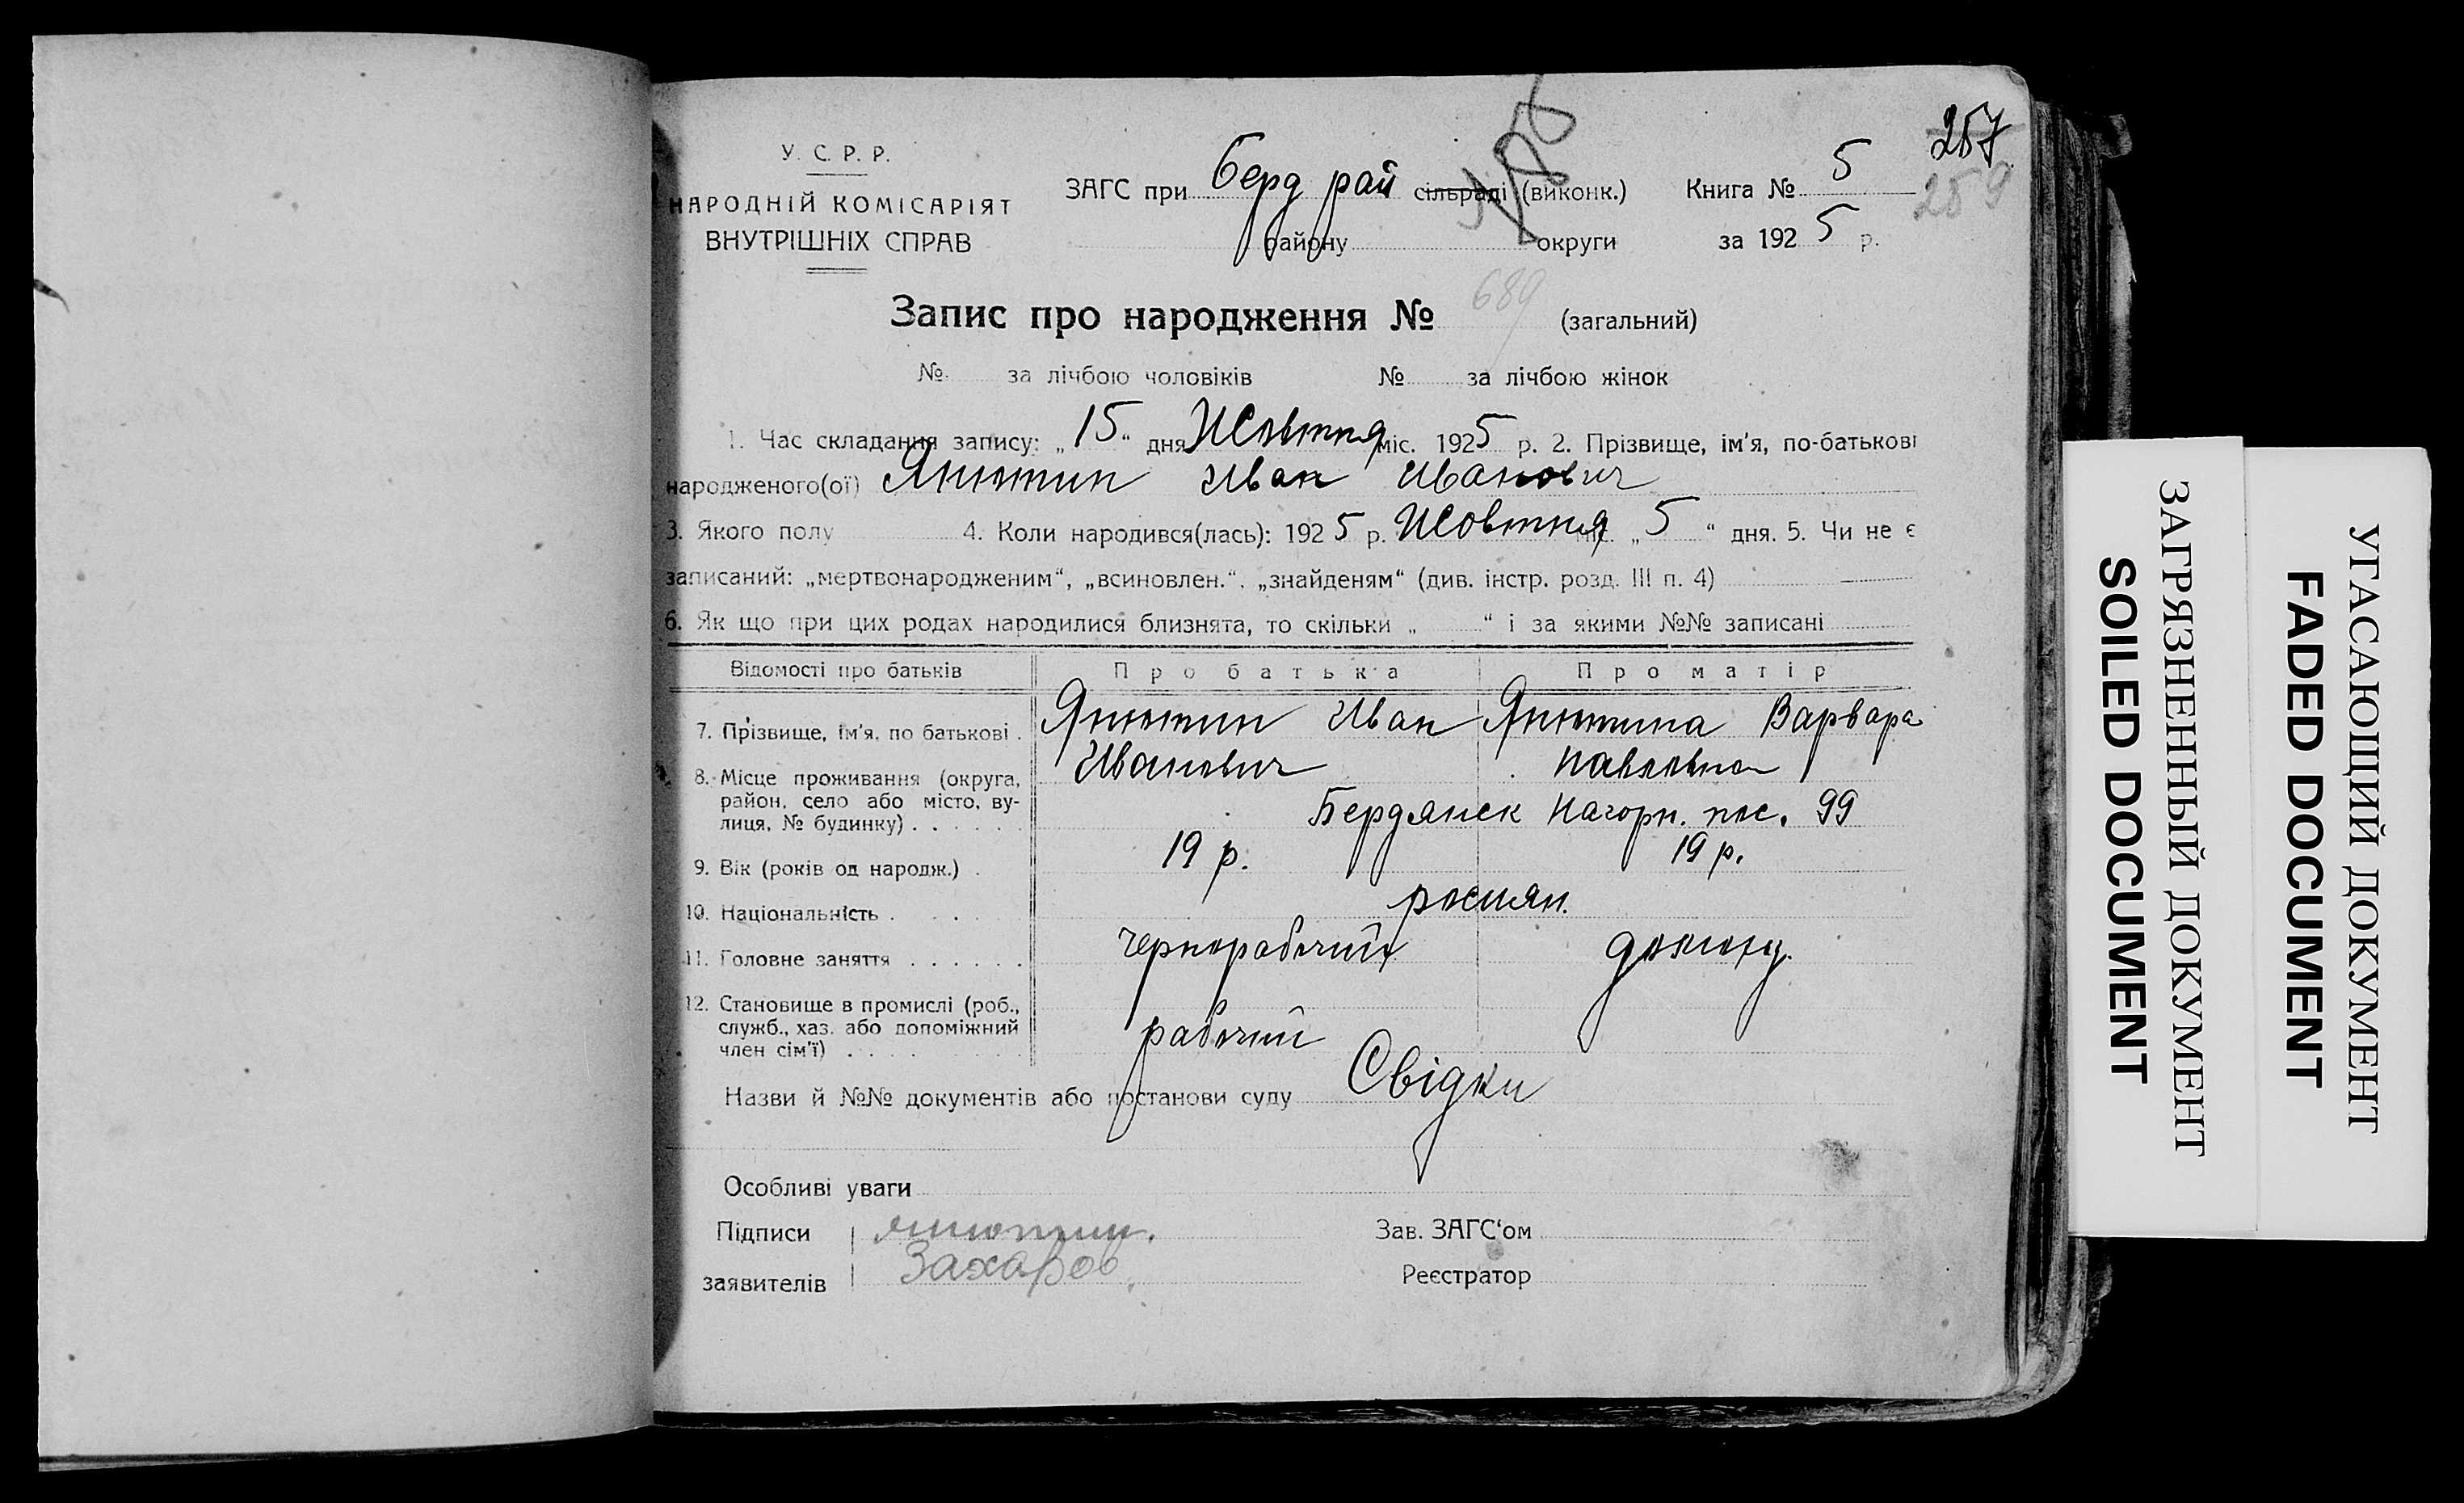 257
259
У. С. Р. Р.
НАРОДНІЙ КОМІСАРІЯТ
ВНУТРІШНІХ СПРАВ
ЗАГС при Берд рай сільраді (виконк.) Книга № 5
району округи за 1925 р.
Запис про народження № 689 (загальний)
№ за лічбою чоловіків № за лічбою жінок
1. Час складання запису: „15“ дня Жовтня міс. 1925 р. 2. Прізвище, ім'я, по-батькові
народженого(ої) Янютин Иван Иванович
3. Якого полу 4. Коли народився(лась): 1925 р. Жовтня міс. „5“ дня. 5. Чи не є
записаний: „мертвонародженим“, „всиновлен.“, „знайденям“ (див. інстр. розд. III п. 4)
6. Як що при цих родах народилися близнята, то скільки „ “ і за якими №№ записані
Відомості про батьків Про батька Про матір
7. Прізвище, ім'я, по батькові . Янютин Иван Янютина Варвара
Иванович Павловна
8. Місце проживання (округа,
район, село або місто, ву-
лиця, № будинку) . . . . . . Бердянск Нагорн. пос. 99
9. Вік (років од народж.) . 19 р. 19 р.
10. Національність . . . . росиян.
11. Головне заняття . . . . . . чернорабочий домогоз.
12. Становище в промислі (роб.,
служб., хаз. або допоміжний
член сім'ї) . . . . рабочий
Назви й №№ документів або постанови суду Свідки
Особливі уваги
Підписи янютин. Зав. ЗАГС'ом
заявителів Захаров Реєстратор
ЗАГРЯЗНЕННЫЙ ДОКУМЕНТ
SOILED DOCUMENT
УГАСАЮЩИЙ ДОКУМЕНТ
FADED DOCUMENT